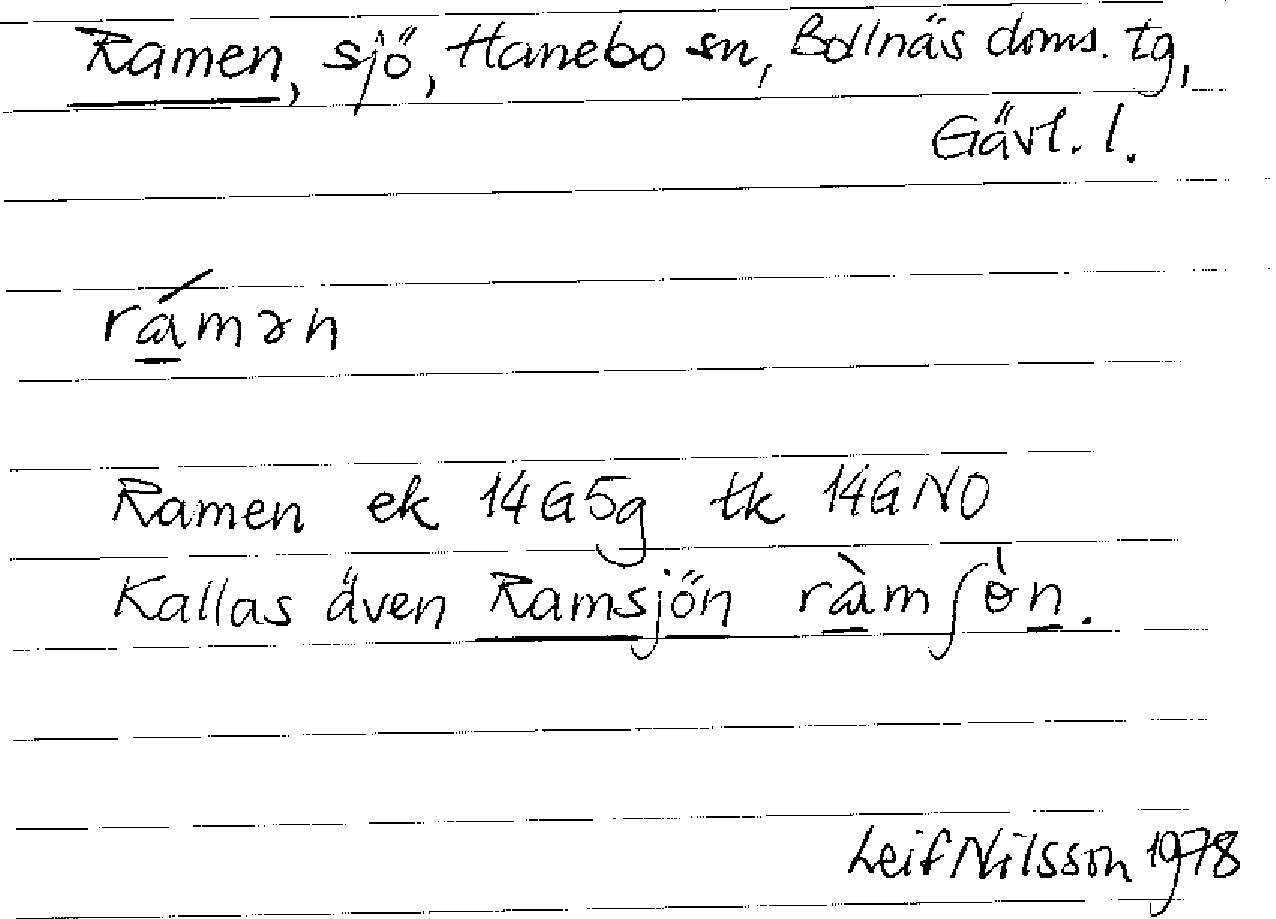 Ramen, sjö, Hanebo sn, Bollnäs doms. tg,
Gävl. l.
rámən
Ramen ek 14G5g tk 14GNO
Kallas även Ramsjön ràmʃòn.
Leif Nilsson 1978